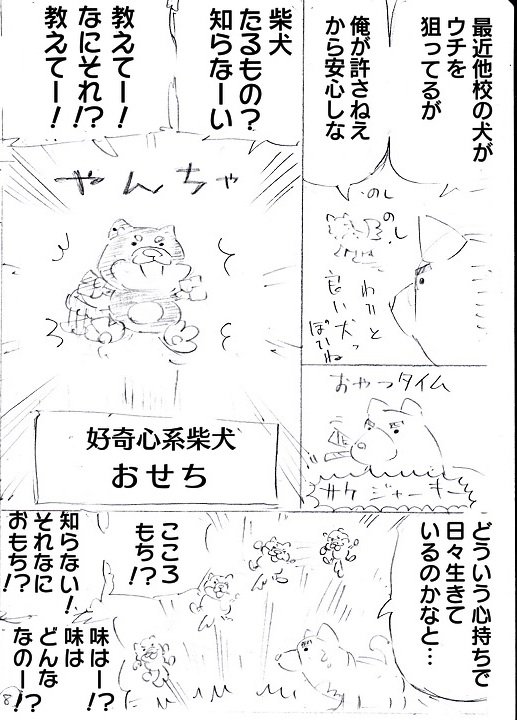 最近他校の犬が
ウチを
狙ってるが
俺が許さねえ
から安心しな
のし
のし
わりと
良い犬っ
ぽいね
おやつタイム
サケジャーキー
柴犬
たるもの?
知らなーい
教えてー!
なにそれ!?
教えてー!
やんちゃ
好奇心系柴犬
おせち
どういう心持ちで
日々生きて
いるのかなと…
こころ
もち!?
知らない!
それなに
おもち!?
味はー!?
味は
どんな
なのー!?
8